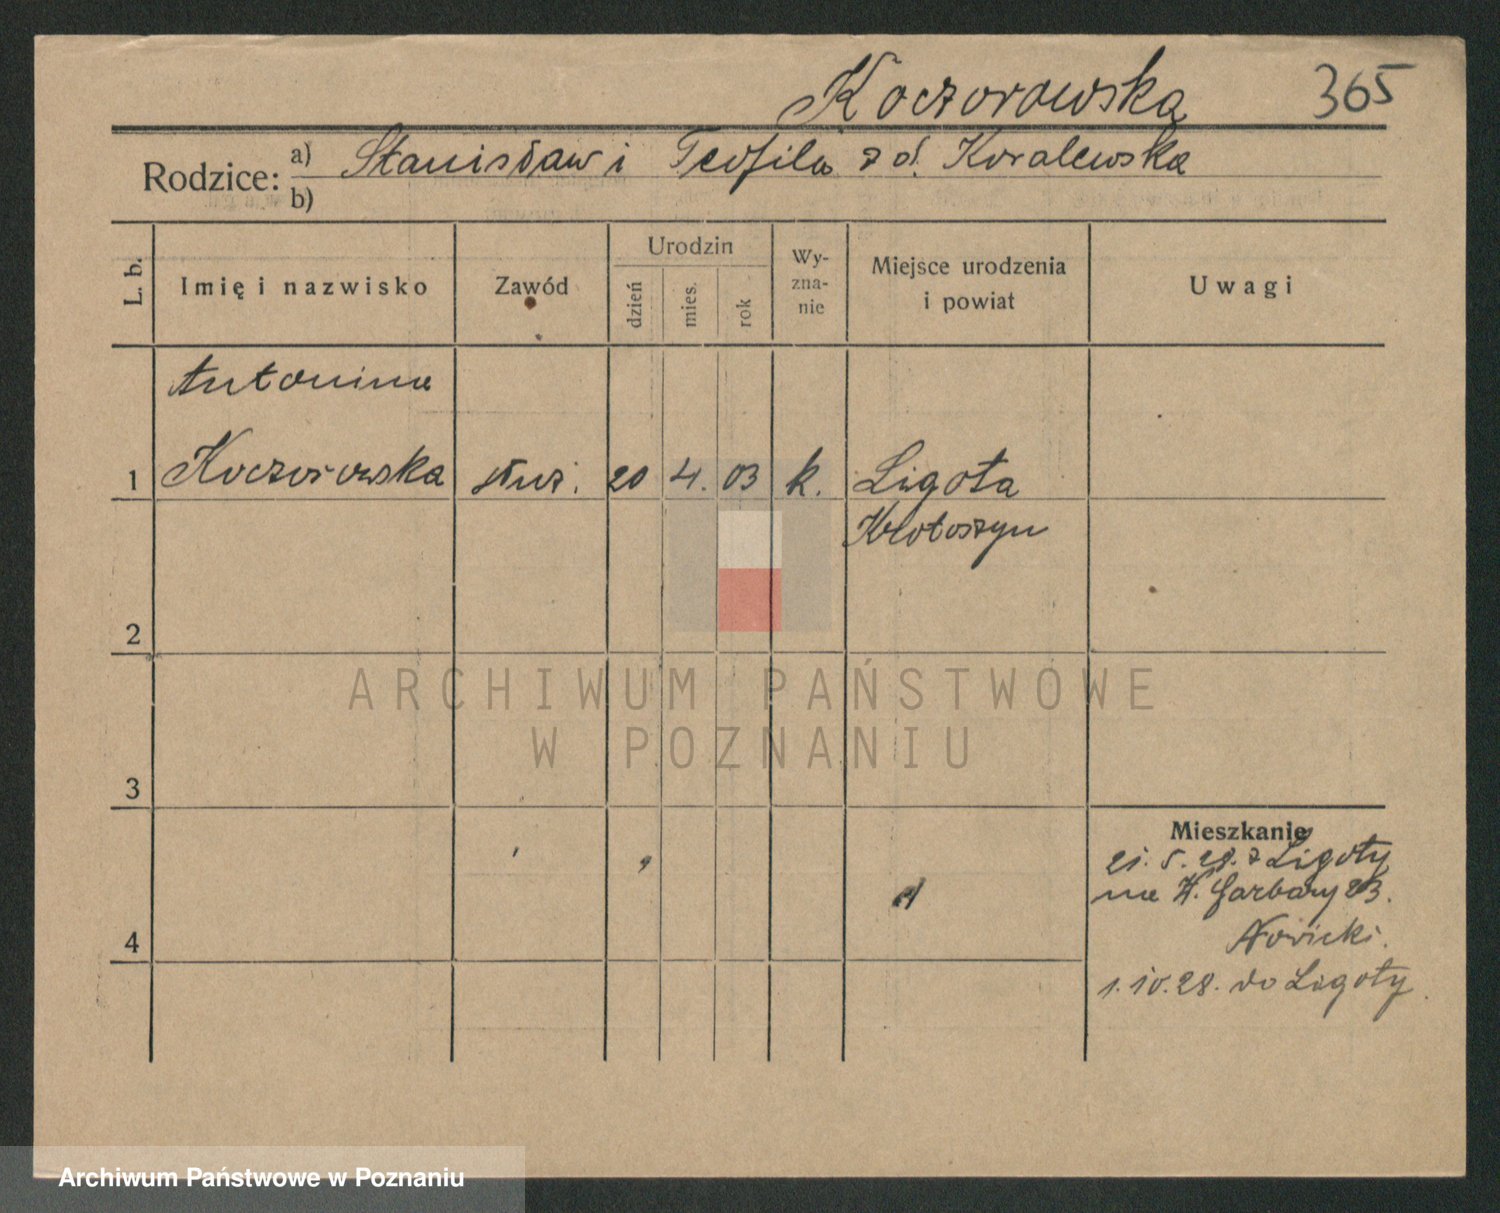 Koczorowska 365
Rodzice: a) Stanisław i Teofila z d. Koralewska
b)
L. b. Imię i nazwisko Zawód Urodzin dzień mies. rok Wyznanie Miejsce urodzenia i powiat Uwagi
Antonina
1 Koczorowska służ. 20 4. 03 k. Ligota
Krotoszyn
2
ARCHIWUM PAŃSTWOWE
W POZNANIU
3
Mieszkanie
21. 5. 28. z Ligoty
na W. Garbary 23.
4 Nowicki.
1. 10. 28. do Ligoty
Archiwum Państwowe w Poznaniu